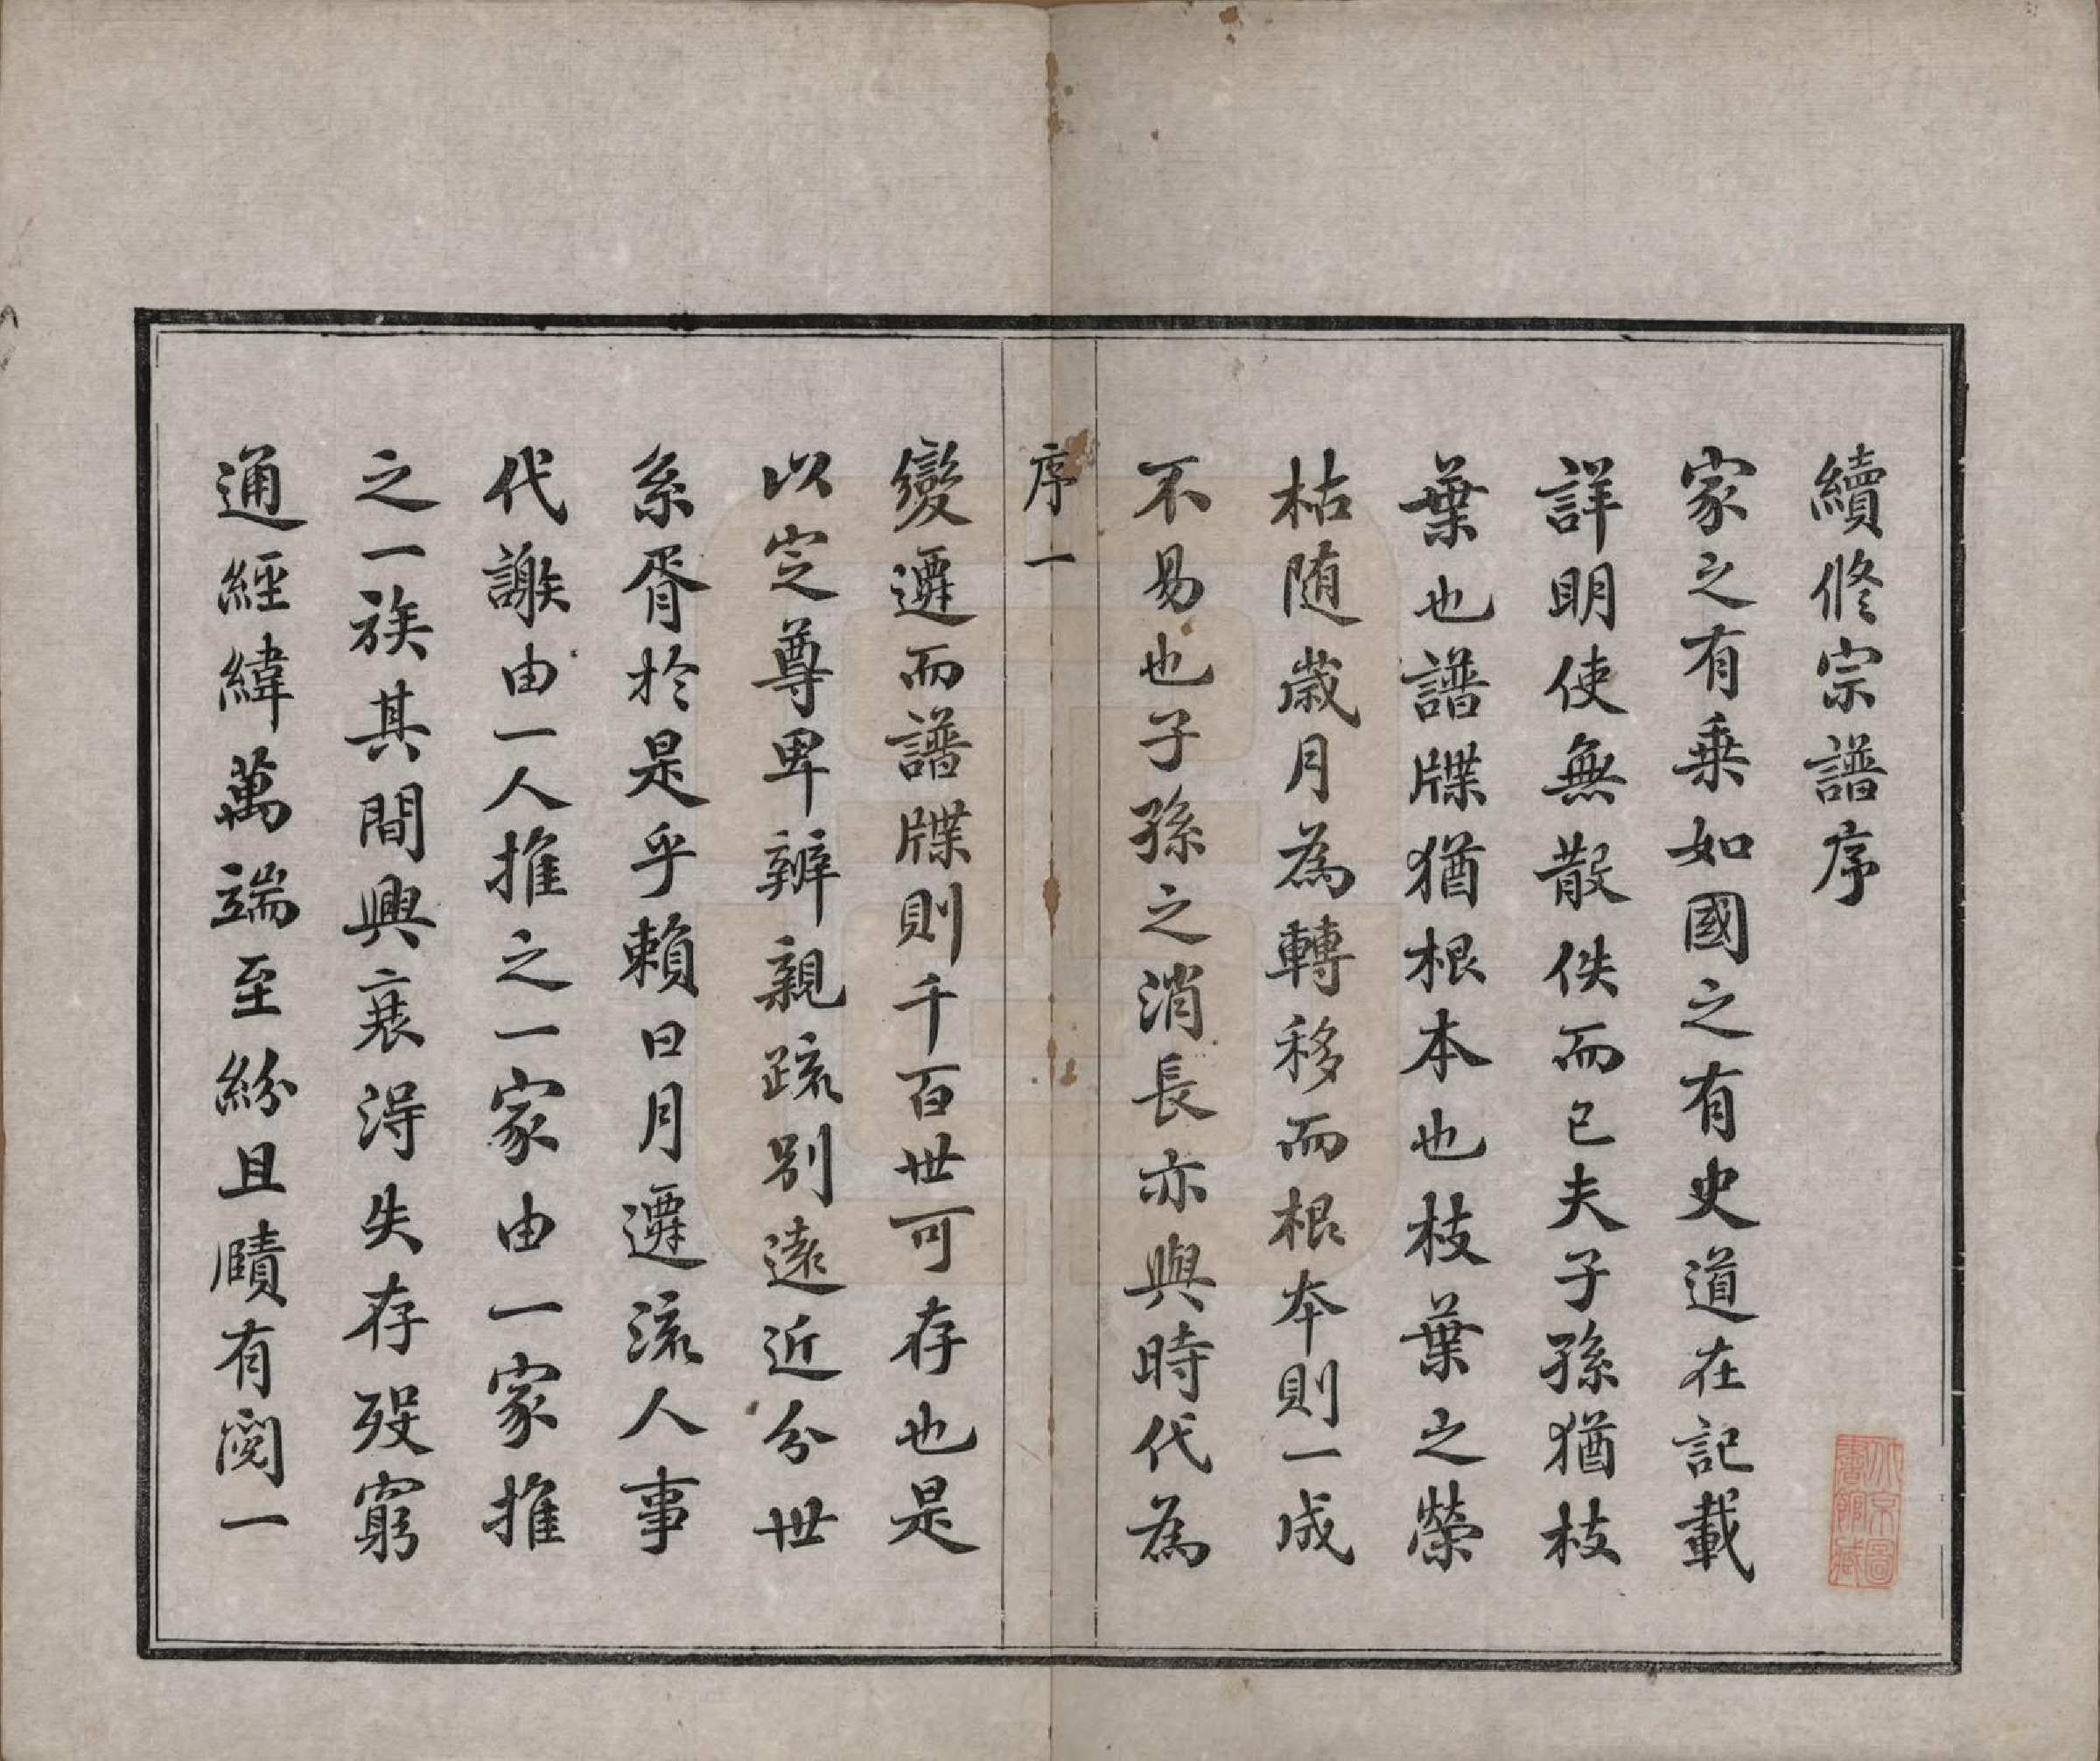 續修宗譜序
家之有乗如國之有史道在記載
詳明使無散佚而已夫子孫猶枝
葉也譜牒猶根本也枝葉之榮
枯随歳月為轉移而根本則一成
不易也子孫之消長亦與時代為
序一
變遷而譜牒則千百世可存也是
以定尊卑辨親疏別遠近分世
系胥於是乎賴日月遷流人事
代謝由一人推之一家由一家推
之一族其間興衰得失存歿窮
通經緯萬端至紛且賾有閱一
北京圖
書館藏